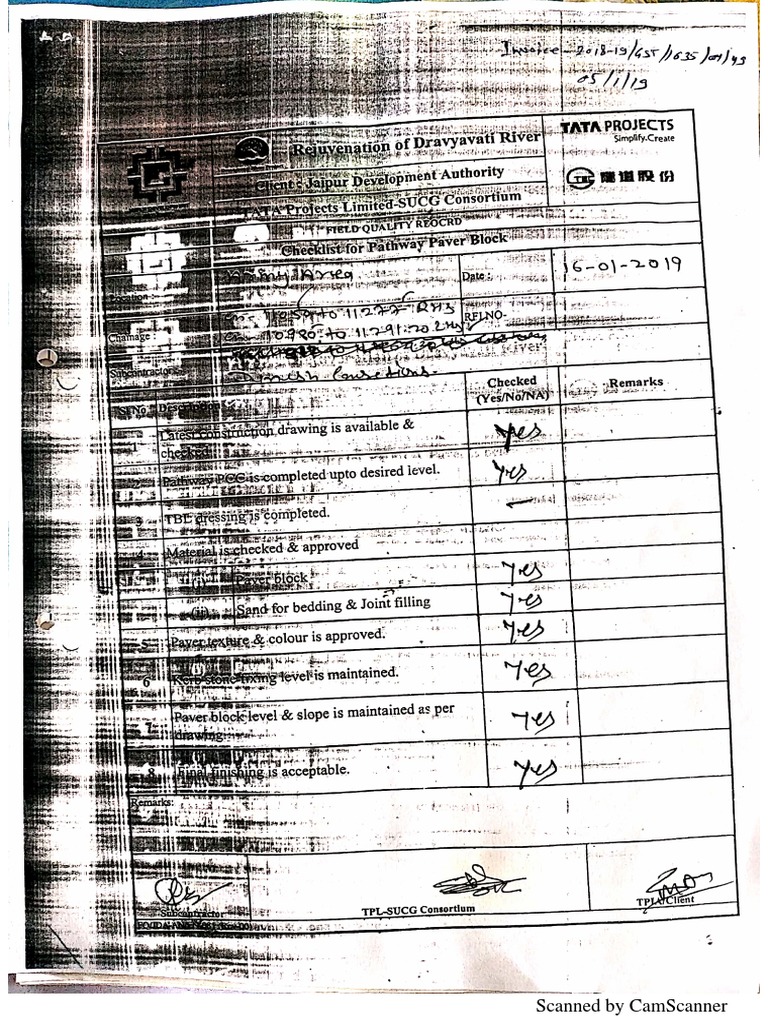 Invoice - 2018-19/GST/1635/01/43
05/1/19
Rejuvenation of Dravyavati River
TATA PROJECTS
Simplify.Create
Client : Jaipur Development Authority
隧道股份
TATA Projects Limited-SUCG Consortium
FIELD QUALITY REOCRD
Checklist for Pathway Paver Block
Location :
Date :
16-01-2019
to 11277 RHS
Chainage :
10980 to 11291.20 LHS
RFI.NO-
Subcontractor
Sl No
Description
Checked
(Yes/No/NA)
Remarks
1 Latest construction drawing is available & checked
Yes
2 Pathway PCC is completed upto desired level.
Yes
3 TBL dressing is completed.
-
4 Material is checked & approved
(i) Paver block
Yes
(ii) Sand for bedding & Joint filling
Yes
5 Paver texture & colour is approved.
Yes
6 Kerb stone fixing level is maintained.
Yes
7 Paver block level & slope is maintained as per drawing
Yes
8 Final finishing is acceptable.
Yes
Remarks:
Subcontractor
TPL-SUCG Consortium
TPIA/Client
Scanned by CamScanner